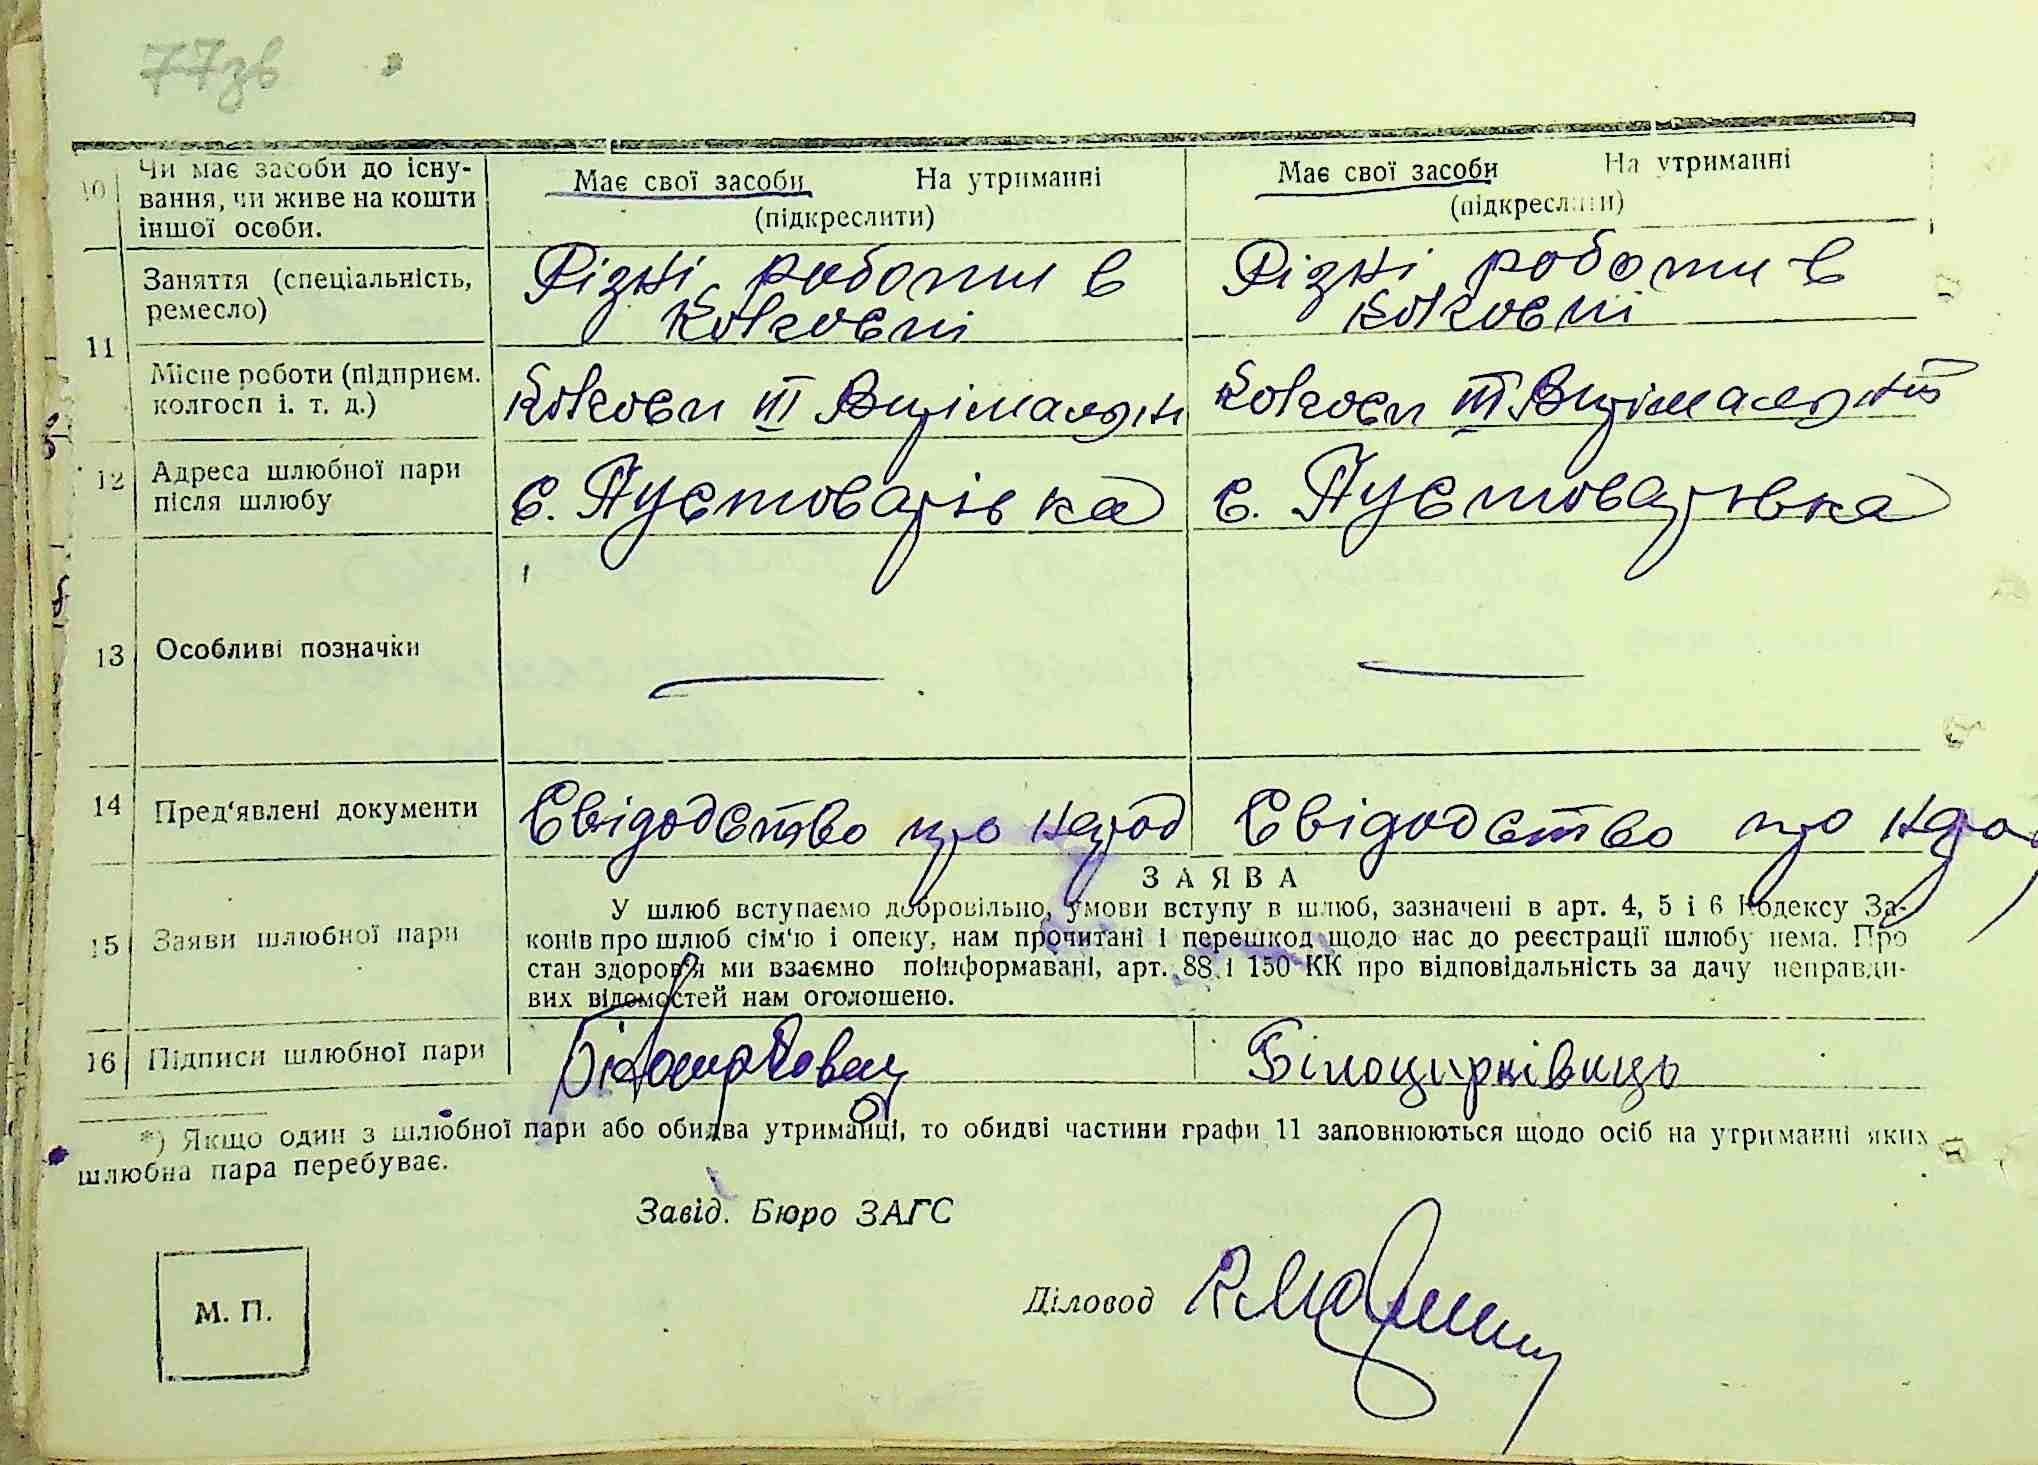 77зв
10 Чи має засоби до існу-
вання, чи живе на кошти
іншої особи.
Має свої засоби На утриманні
(підкреслити)
Має свої засоби На утриманні
(підкреслити)
11
Заняття (спеціальність,
ремесло)
Різні роботи в
колгоспі
Різні роботи в
колгоспі
Місце роботи (підприєм.
колгосп і. т. д.)
Колгосп ІІІ
Колгосп ІІІ
12 Адреса шлюбної пари
після шлюбу
с. Пустоварівка
с. Пустоварівка
13 Особливі позначки
14 Пред'явлені документи
Свідодство про народ
Свідодство про народ
15 Заяви шлюбної пари
ЗАЯВА
У шлюб вступаємо добровільно, умови вступу в шлюб, зазначені в арт. 4, 5 і 6 Кодексу За-
конів про шлюб сім'ю і опеку, нам прочитані і перешкод щодо нас до реєстрації шлюбу нема. Про
стан здоров'я ми взаємно поінформавані, арт. 88 і 150 КК про відповідальність за дачу неправди-
вих відомостей нам оголошено.
16 Підписи шлюбної пари
Білоцирківиць
*) Якщо один з шлюбної пари або обидва утриманці, то обидві частини графи 11 заповнюються щодо осіб на утриманні яких
шлюбна пара перебуває.
Завід. Бюро ЗАГС
Діловод
М. П.